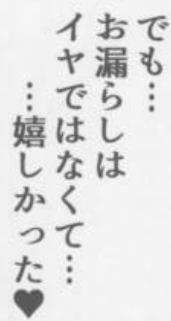 でも…
お漏らしは
イヤではなくて…
…嬉しかった♥